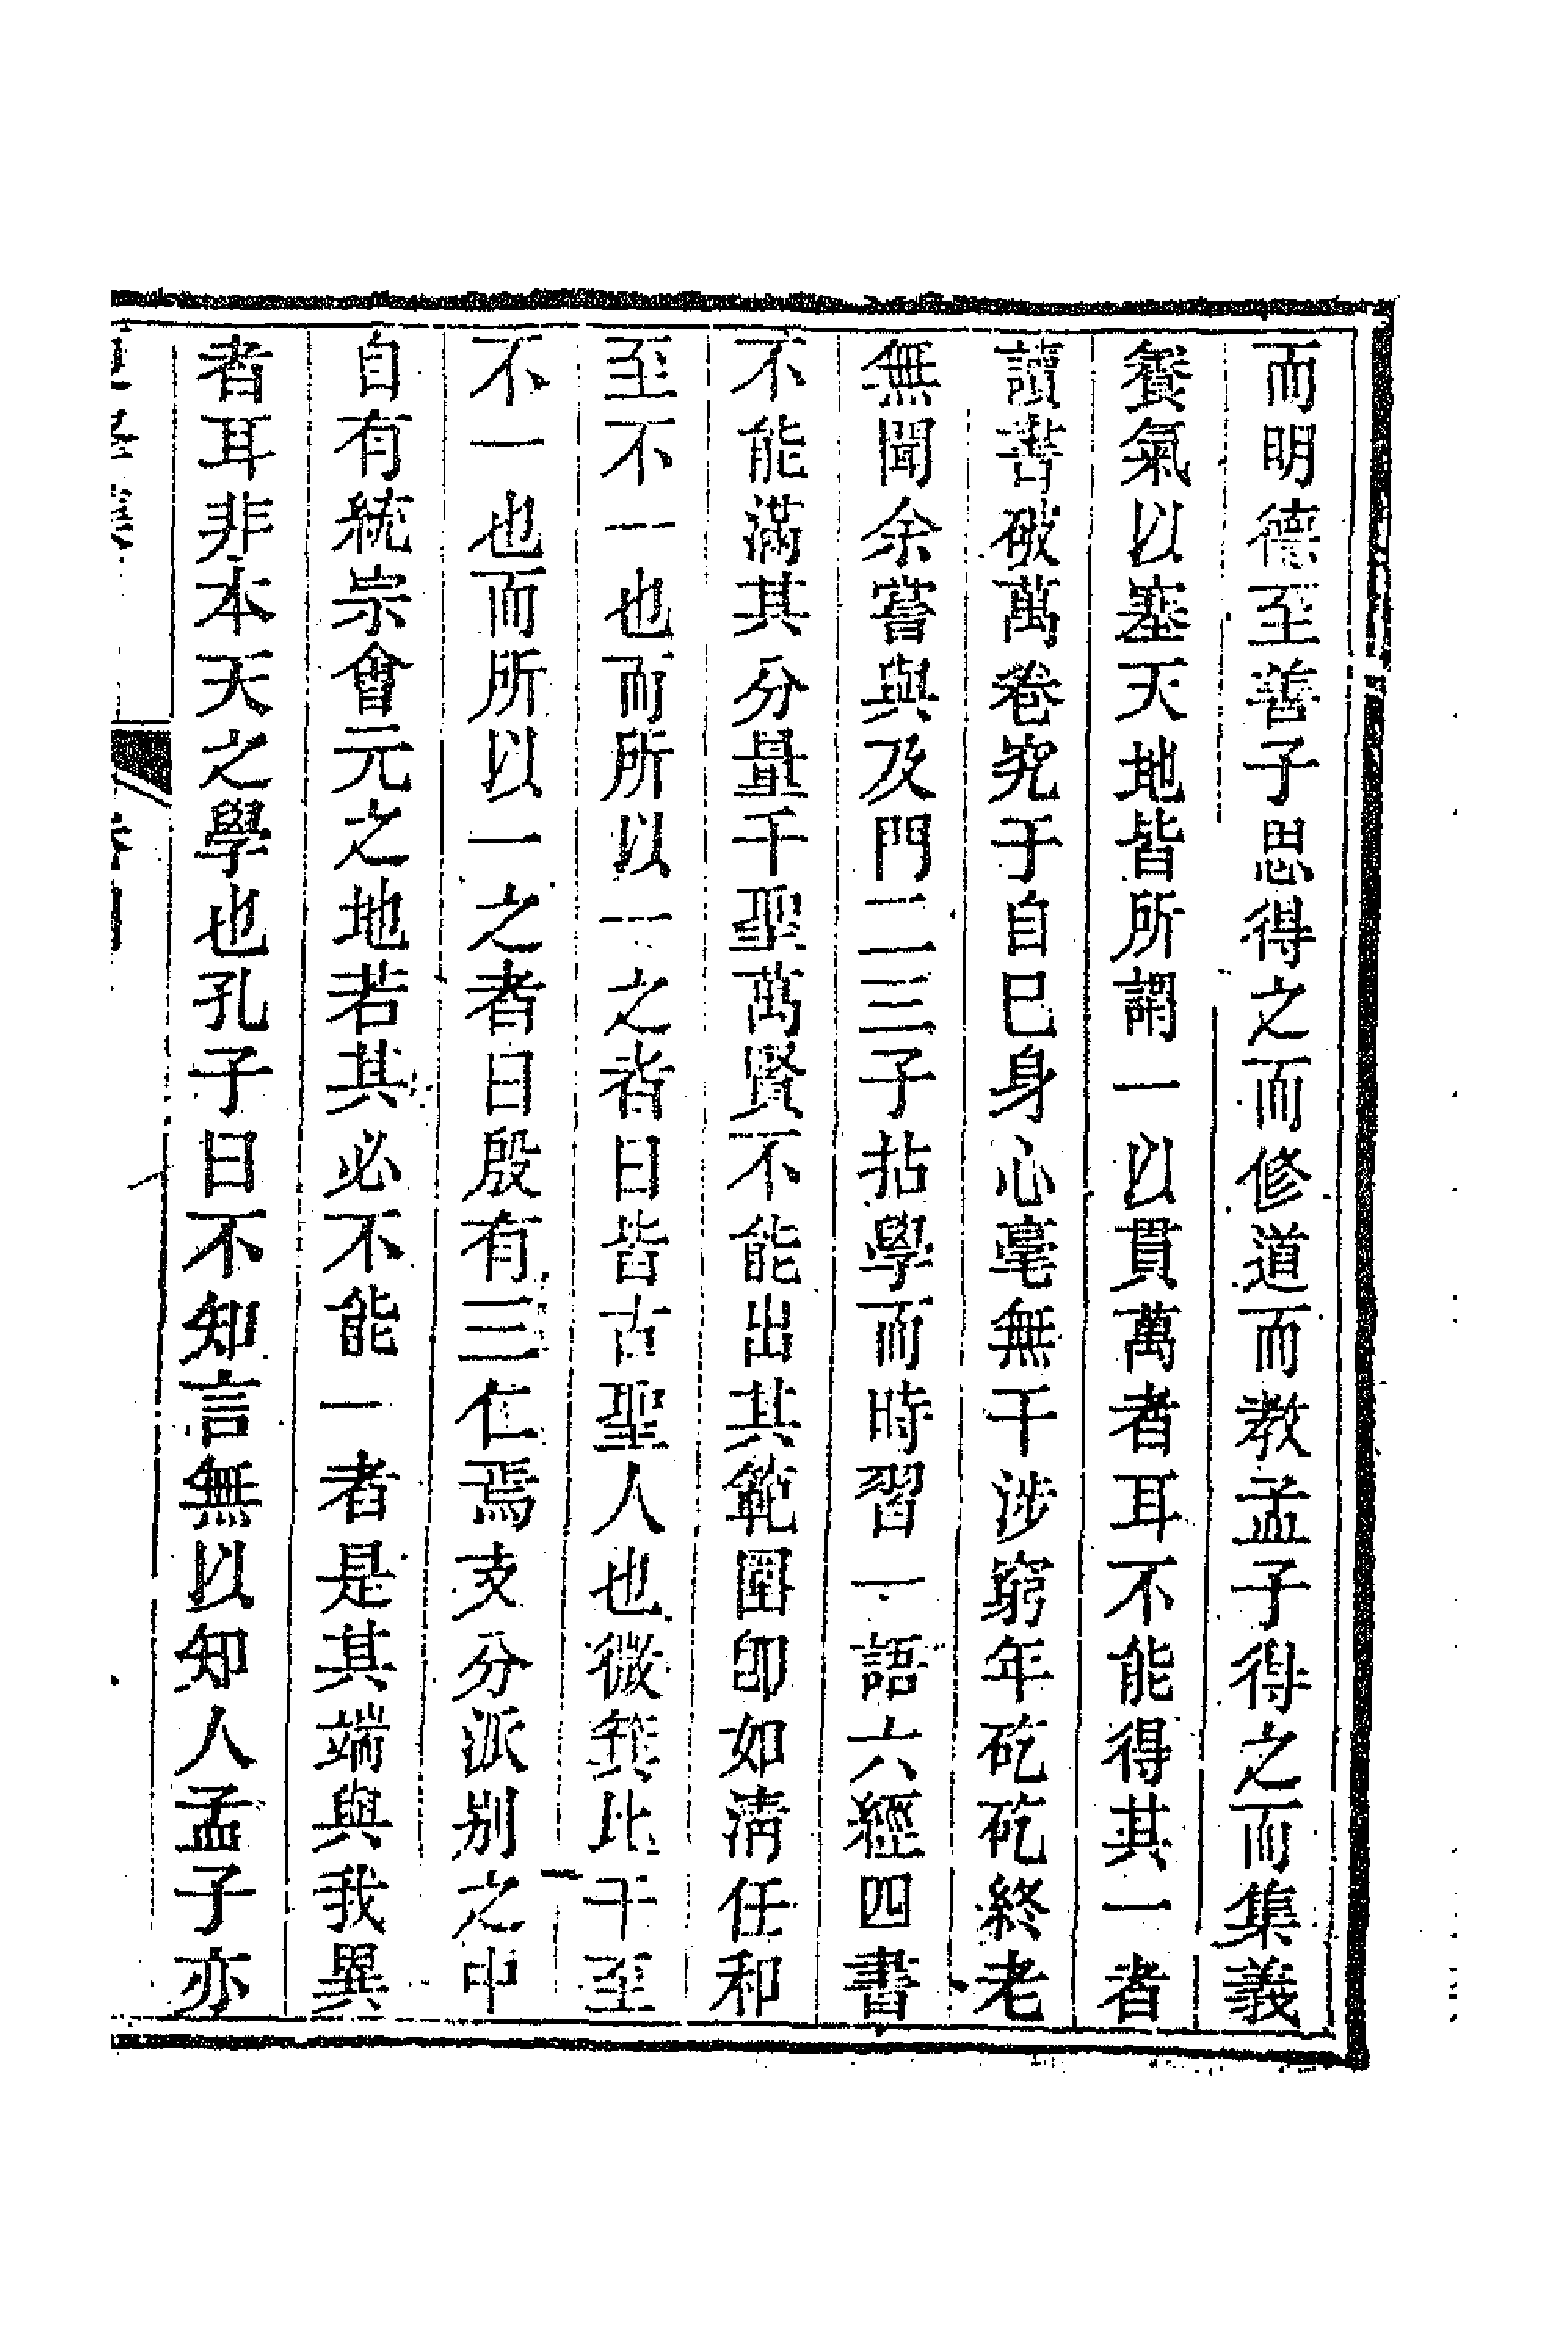 而明德至善子思得之而修道而教孟子得之而集義
養氣以塞天地皆所謂一以貫萬者耳不能得其一者
讀書破萬卷究于自己身心毫無干涉窮年矻矻終老
無聞余嘗與及門二三子拈學而時習一語六經四書
不能滿其分量千聖萬賢不能出其範圍卽如淸任和
至不一也而所以一之者曰皆古聖人也微箕比干至
不一也而所以一之者曰殷有三仁焉支分派别之中
自有統宗會元之地若其必不能一者是其端與我異
者耳非本天之學也孔子曰不知言無以知人孟子亦